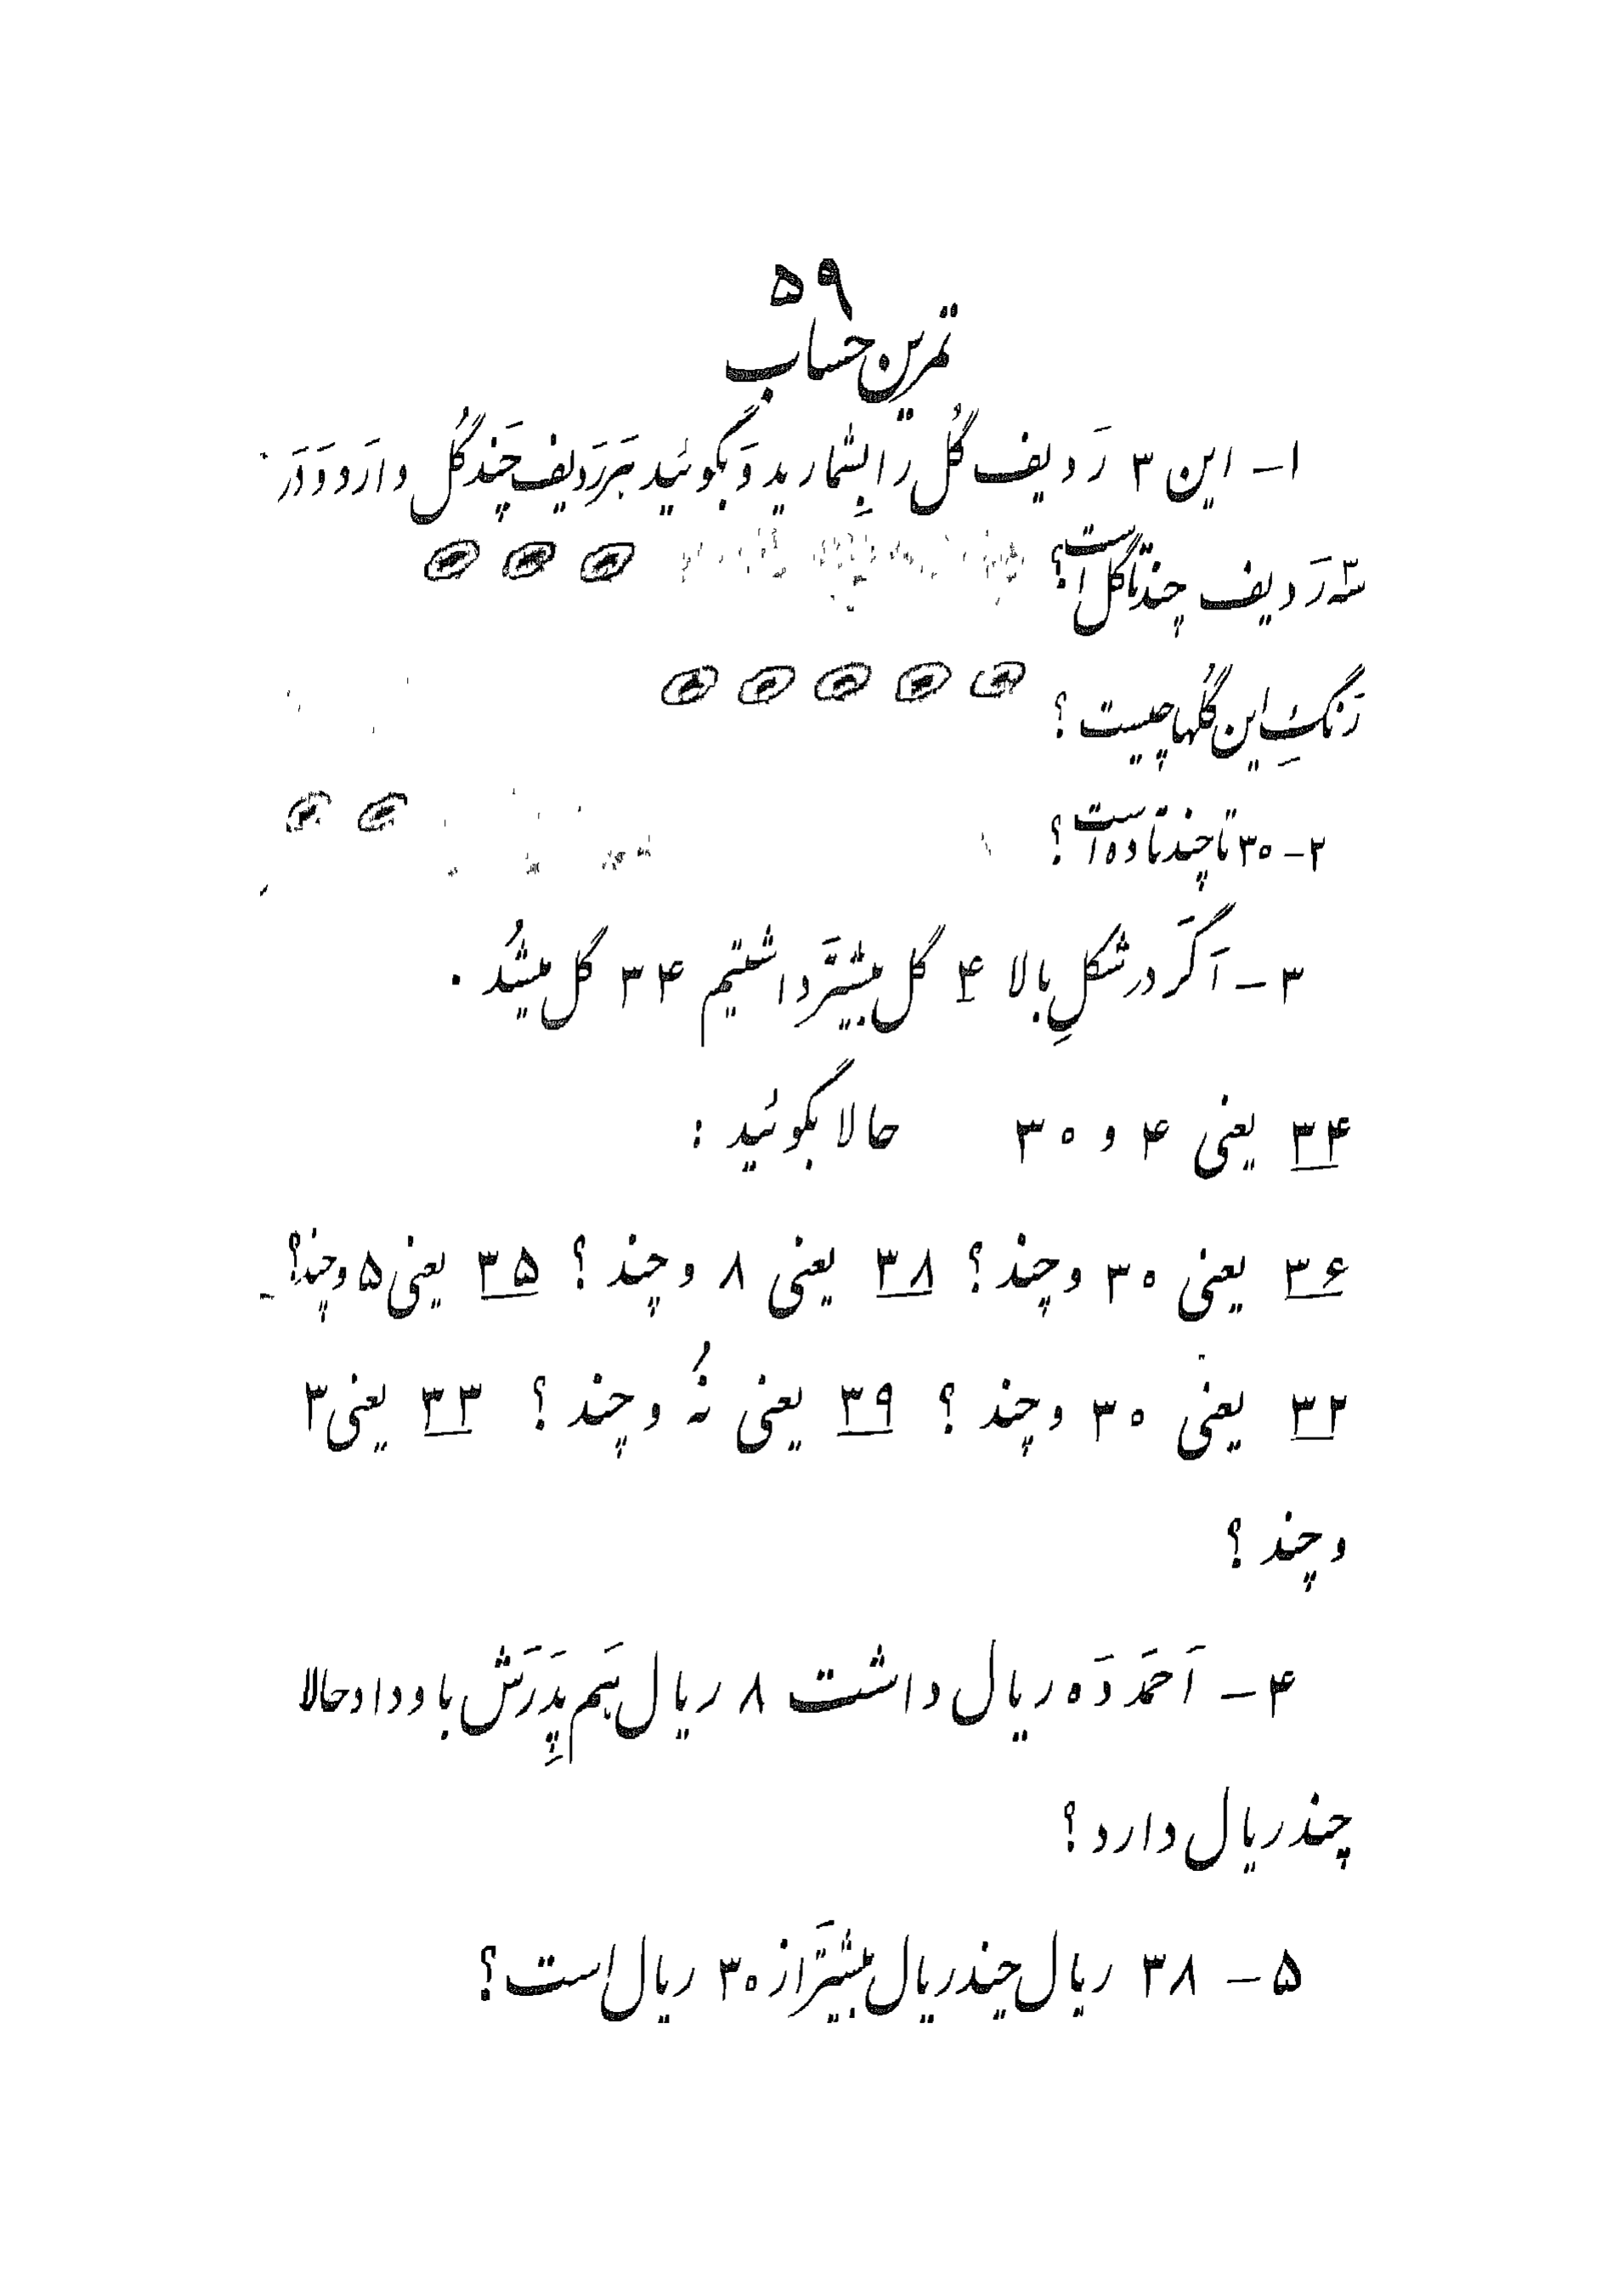 ۵۹
تمرین حساب
۱- این ۳ رَدیف گُل را بِشمارید وَ بگوئید هَر رَدیف چَند گُل دارَد وَ دَر
سه رَدیف چند تا گل است؟
رَنگِ این گُلها چیست ؟
۲- ۳۰ تا چند تا ده است ؟
۳- اَگَر در شکلِ بالا ۴ گل بیشتَر داشتیم ۳۴ گل میشُد .
۳۴ یعنی ۴ و ۳۰ حالا بگوئید :
۳۶ یعنی ۳۰ و چند ؟ ۳۸ یعنی ۸ و چند ؟ ۳۵ یعنی ۵ و چند؟
۳۲ یعنی ۳۰ و چند ؟ ۳۹ یعنی نُه و چند ؟ ۳۳ یعنی ۳
و چند ؟
۴- اَحمَد دَه ریال داشت ۸ ریال هَم پِدَرَش باو داد حالا
چند ریال دارد ؟
۵- ۳۸ ریال چند ریال بیشتَر از ۳۰ ریال است ؟